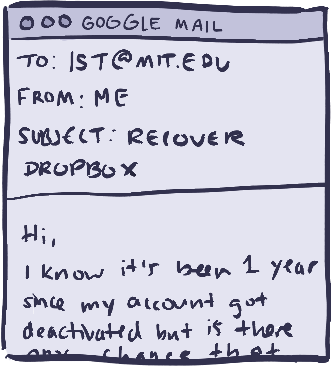 GOGGLE MAIL
TO: IST@MIT.EDU
FROM: ME
SUBJECT: RECOVER
DROPBOX
Hi,
I know it's been 1 year
since my account got
deactivated but is there
any chance that